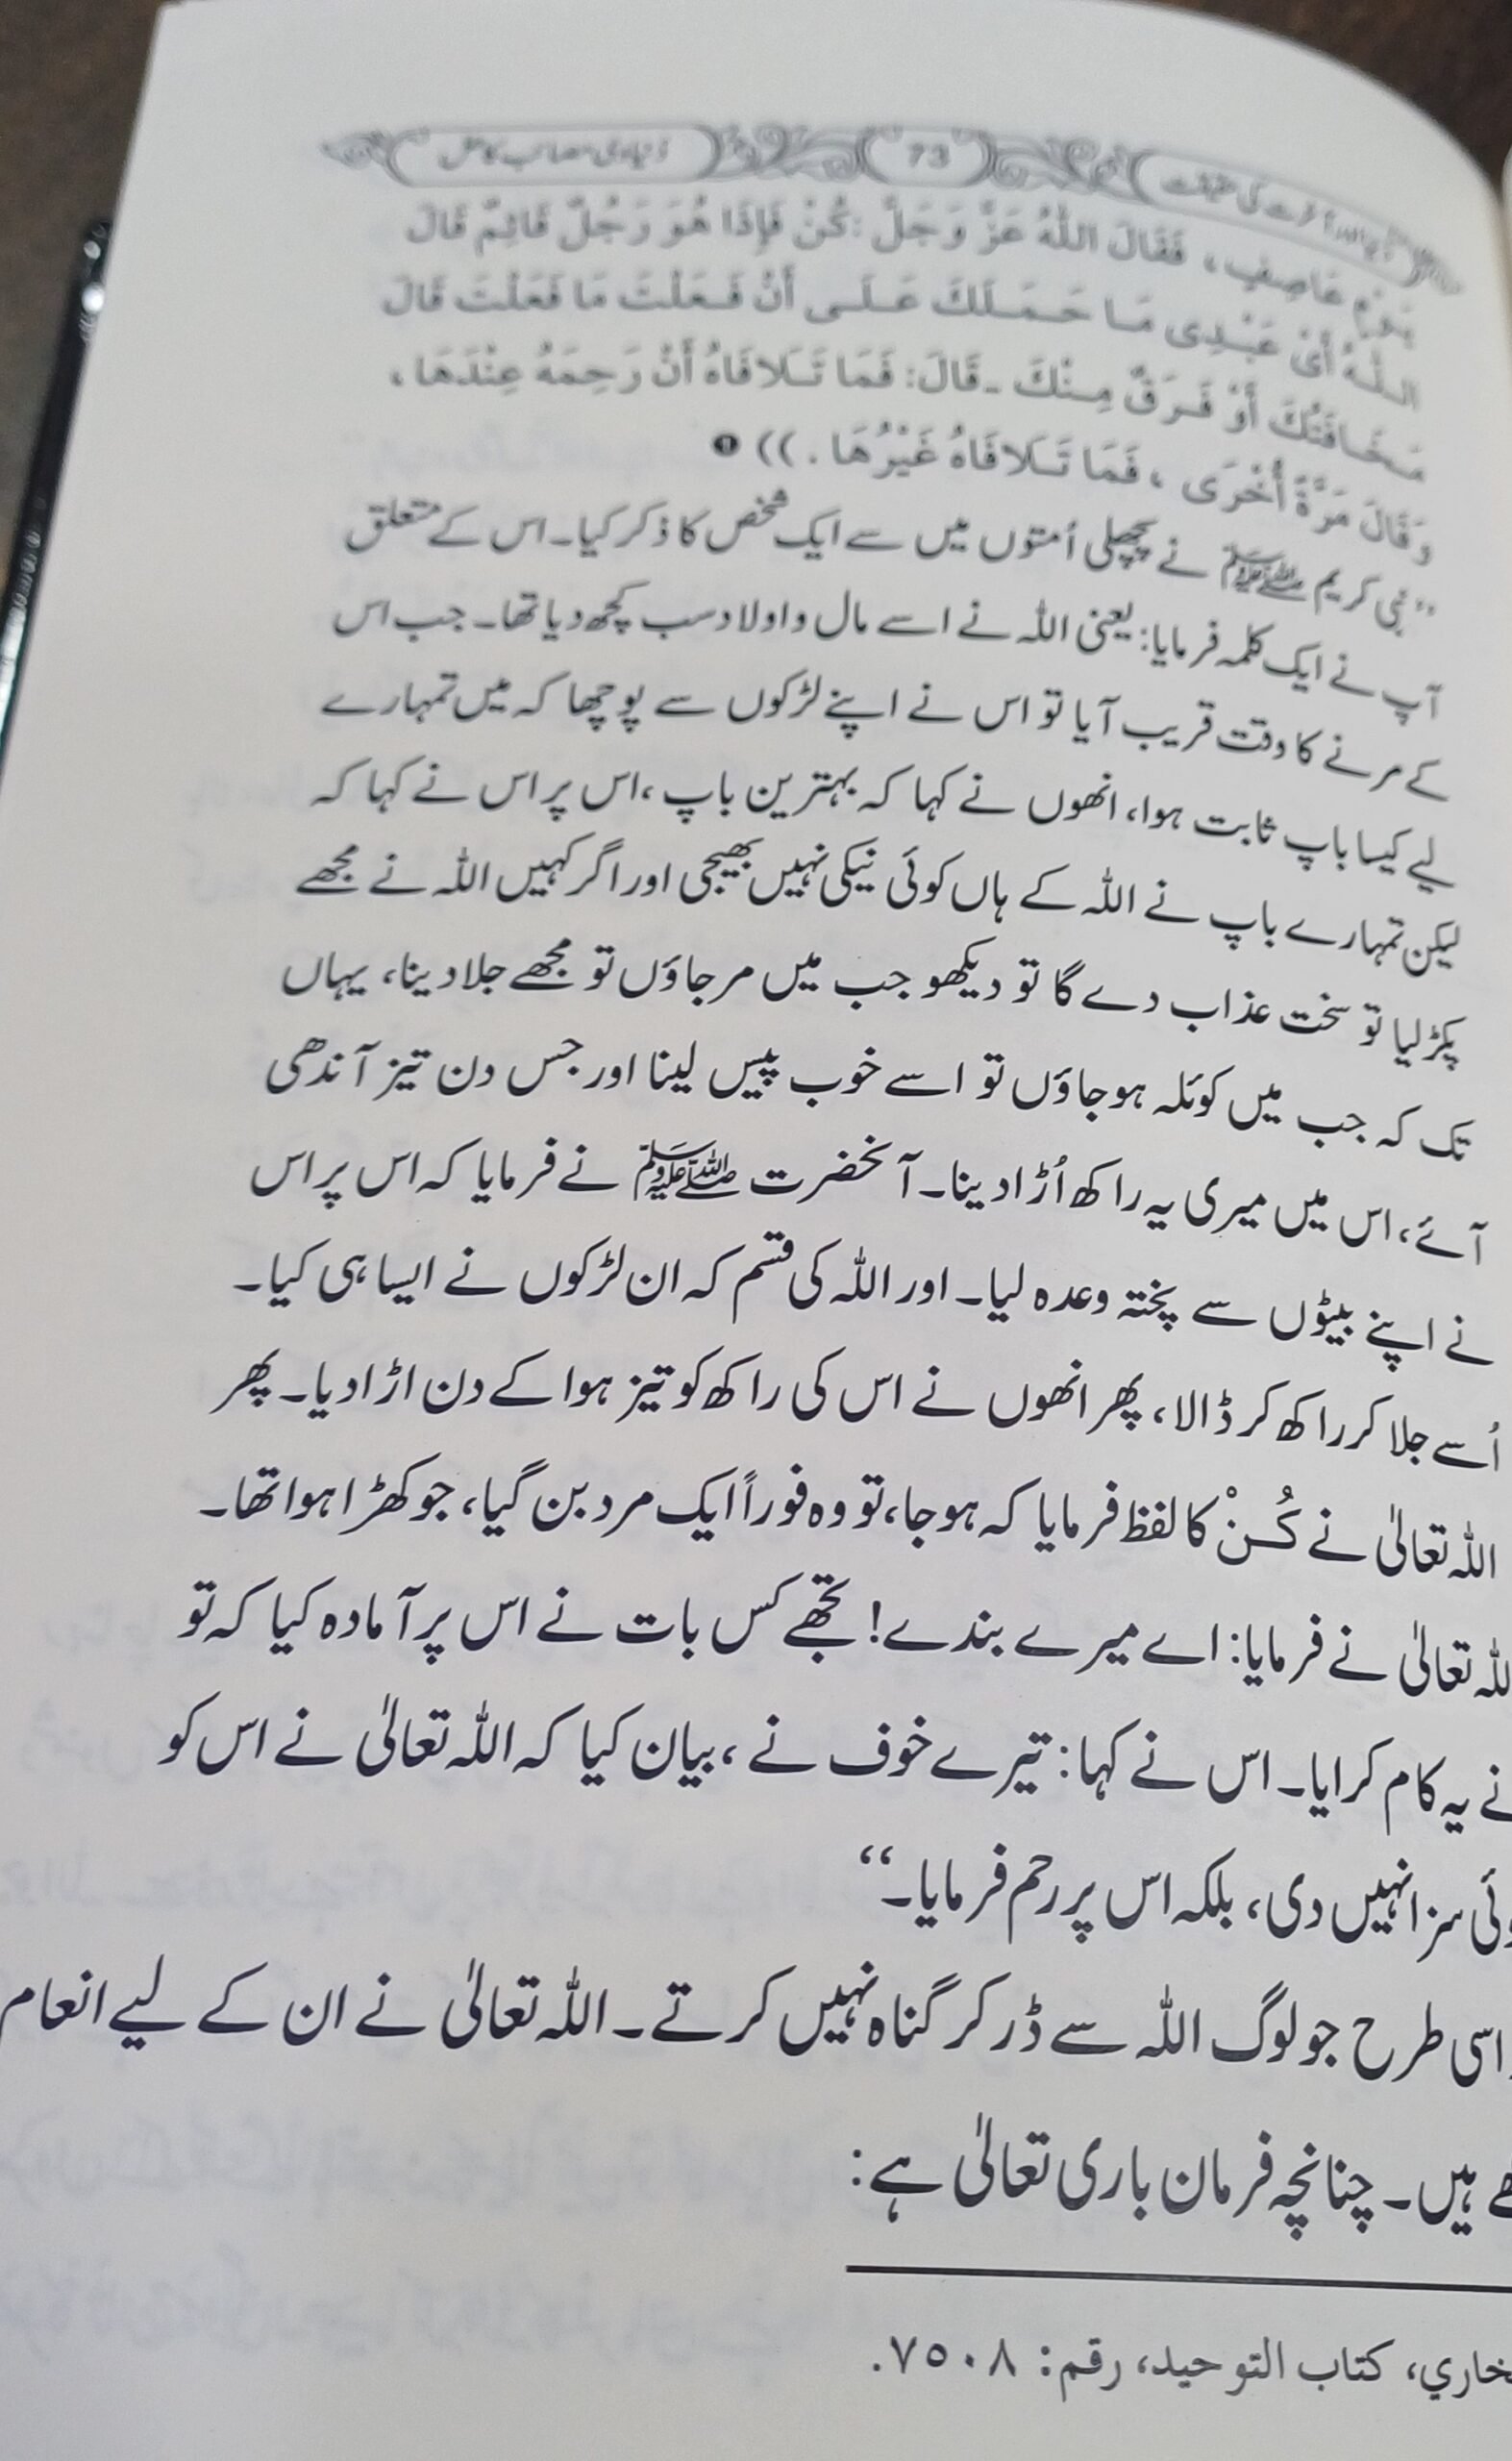 دنیا اور آخرت کی حقیقت 73 دنیاوی مصائب کا حل
يَوْمٍ عَاصِفٍ، فَقَالَ اللّٰهُ عَزَّ وَجَلَّ: كُنْ فَإِذَا هُوَ رَجُلٌ قَائِمٌ قَالَ
اللّٰهُ أَیْ عَبْدِی مَا حَمَلَكَ عَلَى أَنْ فَعَلْتَ مَا فَعَلْتَ قَالَ
مَخَافَتُكَ أَوْ فَرَقٌ مِنْكَ ـ قَالَ: فَمَا تَلافَاهُ أَنْ رَحِمَهُ عِنْدَهَا،
وَقَالَ مَرَّةً أُخْرَى، فَمَا تَلافَاهُ غَيْرُهَا.)) ❶
’’نبی کریم ﷺ نے پچھلی اُمتوں میں سے ایک شخص کا ذکر کیا۔ اس کے متعلق
آپ نے ایک کلمہ فرمایا: یعنی اللہ نے اسے مال و اولاد سب کچھ دیا تھا۔ جب اس
کے مرنے کا وقت قریب آیا تو اس نے اپنے لڑکوں سے پوچھا کہ میں تمہارے
لیے کیسا باپ ثابت ہوا، انھوں نے کہا کہ بہترین باپ، اس پر اس نے کہا کہ
لیکن تمہارے باپ نے اللہ کے ہاں کوئی نیکی نہیں بھیجی اور اگر کہیں اللہ نے مجھے
پکڑ لیا تو سخت عذاب دے گا تو دیکھو جب میں مرجاؤں تو مجھے جلا دینا، یہاں
تک کہ جب میں کوئلہ ہوجاؤں تو اسے خوب پیس لینا اور جس دن تیز آندھی
آئے، اس میں میری یہ راکھ اُڑا دینا۔ آنحضرت ﷺ نے فرمایا کہ اس پر اس
نے اپنے بیٹوں سے پختہ وعدہ لیا۔ اور اللہ کی قسم کہ ان لڑکوں نے ایسا ہی کیا۔
اُسے جلا کر راکھ کر ڈالا، پھر انھوں نے اس کی راکھ کو تیز ہوا کے دن اڑا دیا۔ پھر
اللہ تعالیٰ نے کُنْ کا لفظ فرمایا کہ ہوجا، تو وہ فوراً ایک مرد بن گیا، جو کھڑا ہوا تھا۔
اللہ تعالیٰ نے فرمایا: اے میرے بندے! تجھے کس بات نے اس پر آمادہ کیا کہ تو
نے یہ کام کرایا۔ اس نے کہا: تیرے خوف نے، بیان کیا کہ اللہ تعالیٰ نے اس کو
کوئی سزا نہیں دی، بلکہ اس پر رحم فرمایا۔‘‘
اسی طرح جو لوگ اللہ سے ڈر کر گناہ نہیں کرتے۔ اللہ تعالیٰ نے ان کے لیے انعام
ہیں۔ چنانچہ فرمان باری تعالیٰ ہے:
بخاري، كتاب التوحيد، رقم: ٧٥٠٨.